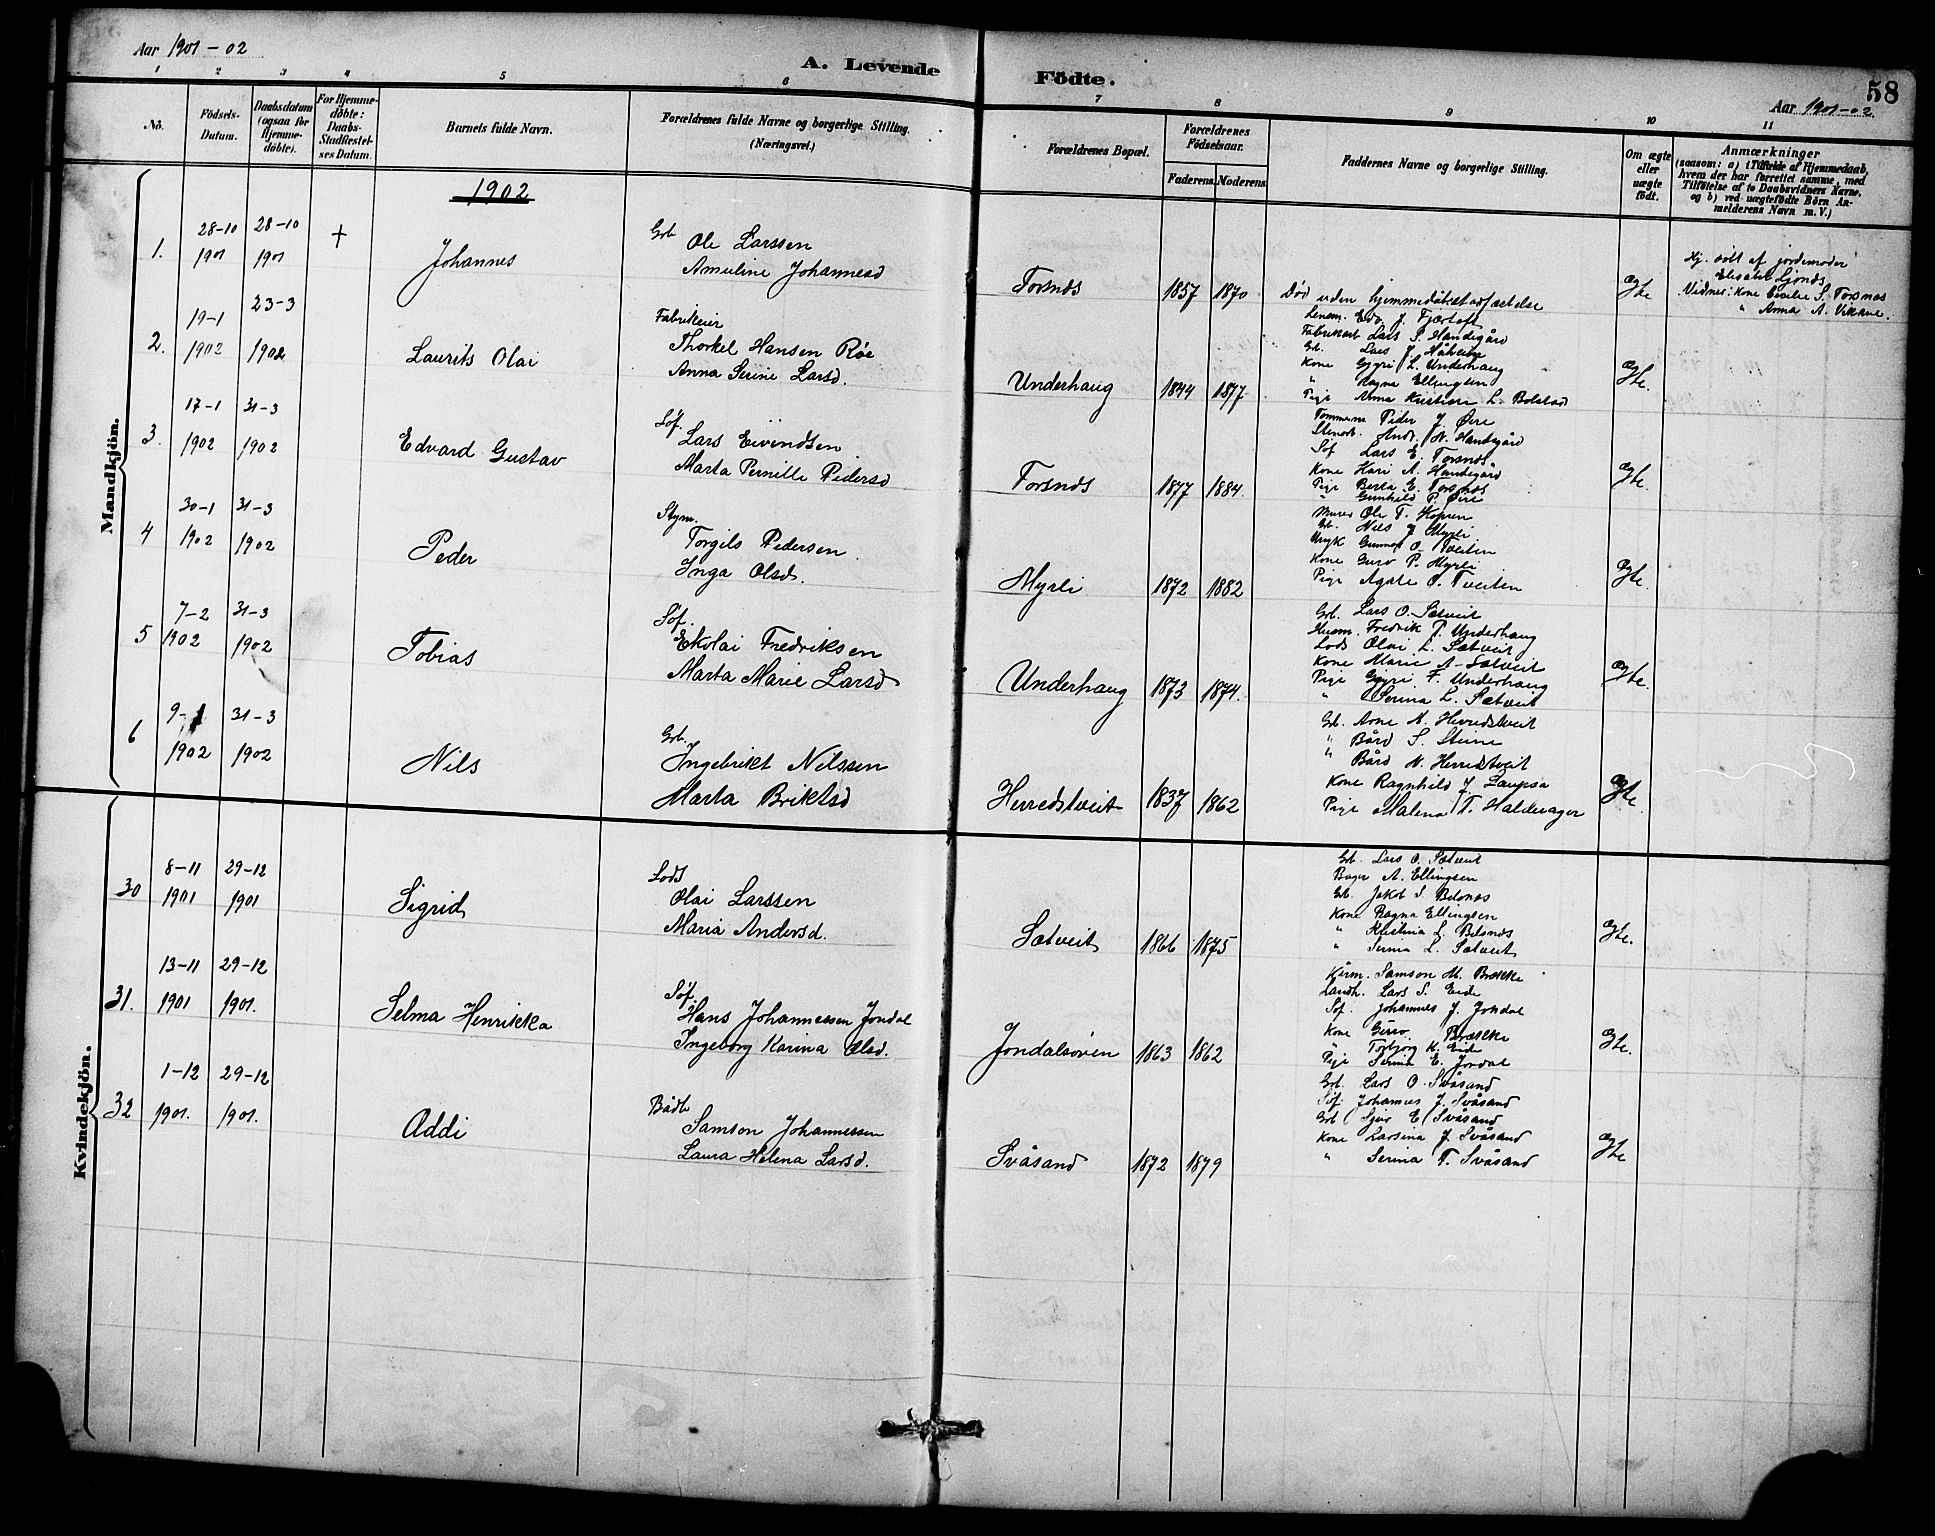 Aar 1901-02
A. Levende Födte.
Aar 1901-02
58
1 2 3 4 5 6 7 8 9 10 11
No.
Födsels-Datum.
Daabsdatum (ogsaa for Hjemme-döbte).
For Hjemme-döbte: Daabs-Stadfæstel-ses Datum.
Barnets fulde Navn.
Forældrenes fulde Navne og borgerlige Stilling. (Næringsvei.)
Forældrenes Bopæl.
Forældrenes Födselsaar.
Faderens. Moderens.
Faddernes Navne og borgerlige Stilling.
Om ægte eller uægte födt.
Anmærkninger
(saasom: a) i Tilfælde af Hjemmedaab,
hvem der har forrettet samme, med
Tilföielse af to Daabsvidners Navne.
og b) ved uægtefödte Börn An-
melderens Navn m. V.)
Mandkjön.
1902
1. 28-10 1901 28-10 1901 † Johannes
Grb. Ole Larssen
Amuline Johannesd
Torsnæs 1857 1870
Död uden hjemmedåbstadfæstelse
Ægte
Hj. döbt af jordemoder
Elisabet Ljones
Vidner: Kone Cecilie S. Torsnæs
" Anna A. Vikane.
2. 19-1 1902 23-3 1902 Laurits Olai
Fabrikeier
Thorkel Hansen Røe
Anna Serine Larsd.
Underhaug 1844 1877
Lensm. Edv. J. Fjærtoft
Fabrikarb. Lars S. Handegård
Grb. Lars J. Håheim
Kone Gyri L. Underhaug
" Ragna Ellingsen
Pige Anna Kristine L. Bolstad
Ægte.
3. 17-1 1902 31-3 1902 Edvard Gustav
Søf.
Lars Eivindsen
Marta Pernille Pedersd
Torsnæs 1877 1884
Tømmerm. Peder J. Øire
Stenarb. Andr. N. Handegård
Søf Lars E. Torsnæs
Kone Kari A. Handegård
Pige Berta E. Torsnæs
" Gunhild P. Øire
Ægte.
4 30-1 1902 31-3 1902 Peder
Stym.
Torgils Pedersen
Inga Olsd.
Myrli 1872 1882
Murer Ole T. Kopren
Grb. Nils J. Myrli
Ungk Gunnar O. Tveiten
Kone Guro P. Myrli
Pige Agate O. Tveiten
Ægte.
5 7-2 1902 31-3 1902 Tobias
Søf.
Ekolai Fredriksen
Marta Marie Larsd
Underhaug 1873 1874.
Grb. Lars O. Sætveit
Husm. Fredrik T. Underhaug
Lods Olai L. Sætveit
Kone Marie A. Sætveit
Pige Gyri F. Underhaug
" Serina L. Sætveit
Ægte.
6 1902 31-3 1902 Nils
Grb.
Ingebrikt Nilssen
Marta Briktsd
Herredstveit 1837 1862
Grb. Arne N. Herredstveit
" Bård S. Steine
" Bård N. Herredstveit
Kone Ragnhild J. Laupsa
Pige Malena T. Halderager
Ægte.
Kvindekjön.
30 8-11 1901 29-12 1901 Sigrid
Lods
Olai Larssen
Maria Andersd.
Sætveit 1866 1875
Grb. Lars O. Sætveit
Bager A. Ellingsen
Grb. Jakob S. Belsnæs
Kone Ragna Ellingsen
" Kristina L. Belsnæs
" Serina L. Sætveit
Ægte.
31. 13-11 1901 29-12 1901. Selma Henrikka
Søf.
Hans Johannessen Jondal
Ingeborg Karina Olsd.
Jondalsøren 1863 1862
Kirm. Samson M. Brække
Landh. Lars S. Eide
Søf. Johannes J. Jondal
Kone Guro Brække
" Torbjørg K. Eide
Pige Serina E. Jondal
Ægte.
32 1-12 1901. 29-12 1901. Addi
Bådb
Samson Johannessen
Laura Helena Larsd.
Svåsand 1872 1879
Grb. Lars O. Svåsand
Søf. Johannes J. Svåsand
Grb Sjur E. Svåsand
Kone Larsina J. Svåsand
" Serina T. Svåsand
Ægte